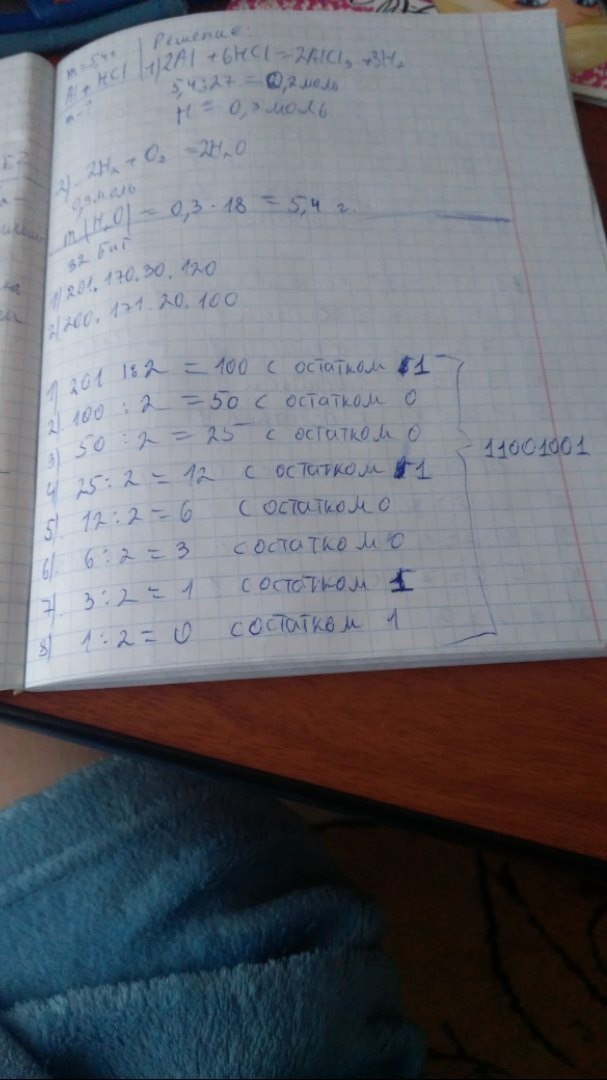 Решение:
m=5,4г
Al + HCl 1) 2Al + 6HCl = 2AlCl₃ + 3H₂
m-?
5,4:27 = 0,2 моль
H = 0,3 моль
2). 2H₂ + O₂ = 2H₂O
0,3 моль
m(H₂O) = 0,3 · 18 = 5,4 г.
32 бит
1) 201.170.30.120
2) 200.171.20.100
1) 201 : 2 = 100 с остатком 1
2) 100 : 2 = 50 с остатком 0
3) 50 : 2 = 25 с остатком 0
4) 25 : 2 = 12 с остатком 1
5) 12 : 2 = 6 с остатком 0
6) 6 : 2 = 3 с остатком 0
7) 3 : 2 = 1 с остатком 1
8) 1 : 2 = 0 с остатком 1
11001001